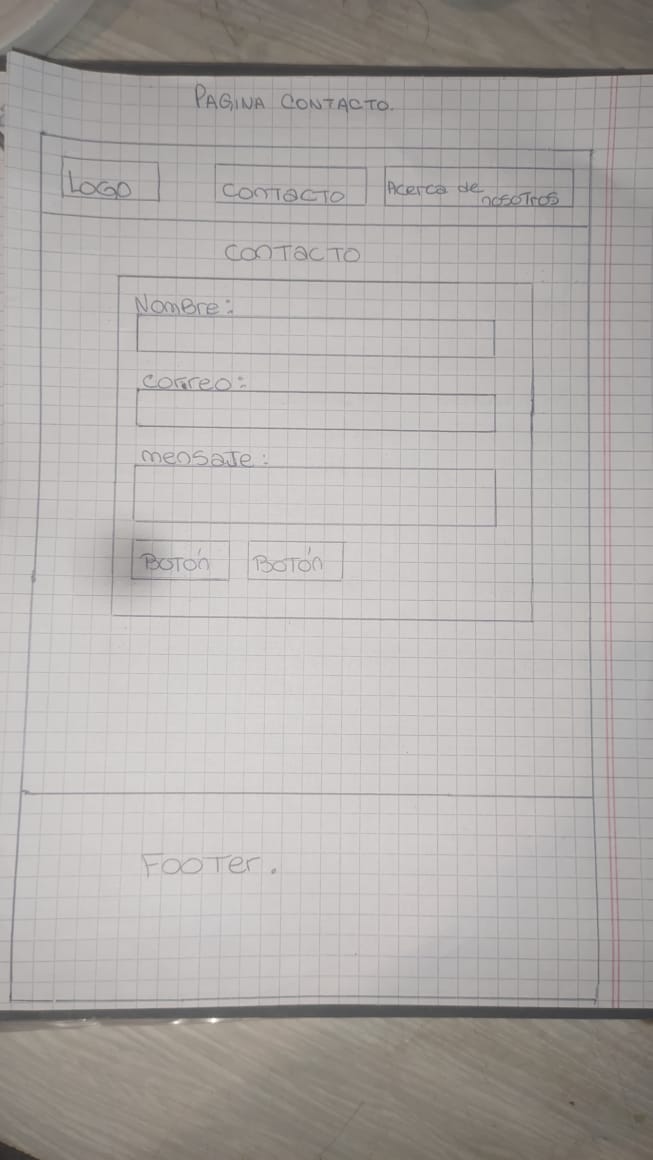 PAGINA CONTACTO.
LOGO
CONTACTO
Acerca de
nosotros
CONTACTO
Nombre:
correo:
mensaje:
BOTón
BOTón
FOOTer.